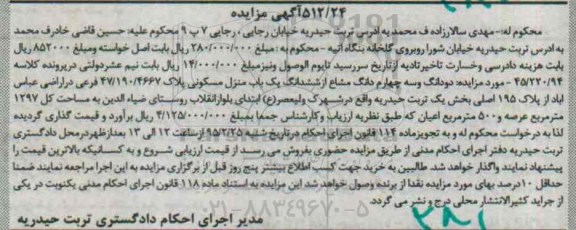 ۵۱۲/۲۴آگهی مزایده
محکوم له:- مهدی سالارزاده ف محمدبه آدرس تربت حیدریه خیابان رجایی، رجایی ۷ پ ۹ محکوم علیه: حسین قاضی خادرف محمد
به ادرس تربت حیدریه خیابان شورا روبروی گلخانه بنگاه اتیه - محکوم به : مبلغ ۲۸۰/۰۰۰/۰۰۰ ریال بابت اصل خواسته ومبلغ ۸۵۲۰۰۰ ریال
بابت هزینه دادرسی وخسارت تاخیرتادیه ازتاریخ سررسید تایوم الوصول ونیزمبلغ ۱۴/۰۰۰/۰۰۰ ریال بابت نیم عشردولتی درپرونده کلاسه
۴۵/۲۲۰/۹۴ - مورد مزایده: دودانگ وسه چهارم دانگ مشاع ازششدانگ یک باب منزل مسکونی پلاک ۴۷/۱۹۰/۴۶۶۷ فرعی دراراضی عباس
اباد از پلاک ۱۹۵ اصلی بخش یک تربت حیدریه واقع درشهرک ولیعصر(ع) ابتدای بلوارانقلاب روستای ضیاء الدین به مساحت کل ۱۲۹۷
مترمربع عرصه و۵۰۰ مترمربع اعیان که طبق نظریه ارزیاب وکارشناس جمعا بمبلغ ۴/۱۲۵/۰۰۰/۰۰۰ ریال برآورد و قیمت گذاری گردیده
لذا به درخواست محکوم له و به تجویزماده ۱۱۴ قانون اجرای احکام درتاریخ شنبه ۹۵/۲/۲۵ ازساعت ۱۲ الی ۱۳ بعدازظهردرمحل دادگستری
تربت حیدریه دفتر اجرای احکام مدنی از طریق مزایده حضوری بفروش می رسد از قیمت ارزیابی شروع و به کسانیکه بالاترین قیمت را
پیشنهاد نمایند واگذار خواهد شد طالبین به خرید جهت کسب اطلاع بیشتر پنج روز قبل از برگزاری مزایده به این اجرا مراجعه نمایند ضمنا
حداقل ۱۰درصد بهای مورد مزایده نقدا از برنده وصول خواهد شد این مزایده به استناد ماده ۱۱۸ قانون اجرای احکام مدنی یکنوبت در یکی
از جراید کثیرالانتشار محلی درج و نشر می گردد.
مدیر اجرای احکام دادگستری تربت حیدریه
۰۲۱-۸۸۳۴۹۶۷۰-۵